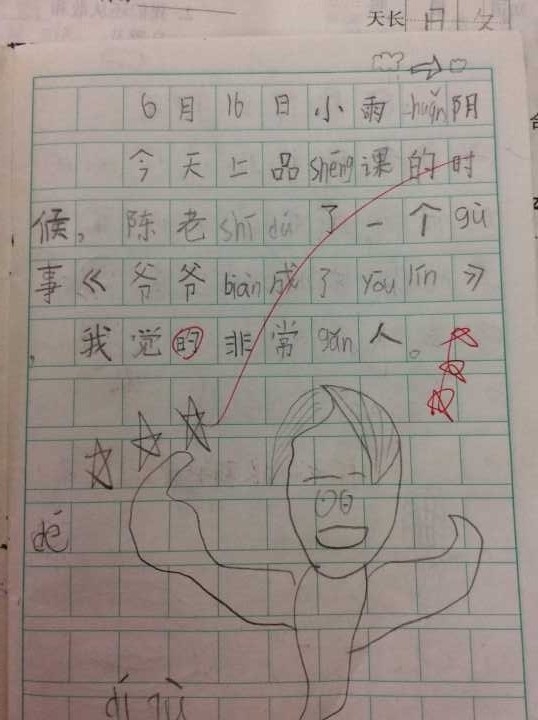 天长日久
6月16日小雨zhuǎn阴
今天上品shēng课的时
候,陈老shī dú了一个gù
事《爷爷biàn成了yōu lín》
,我觉的非常gǎn人。
dé